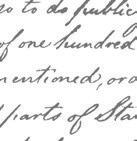 to do public
of one hundred
mentioned, or a
parts of Sta